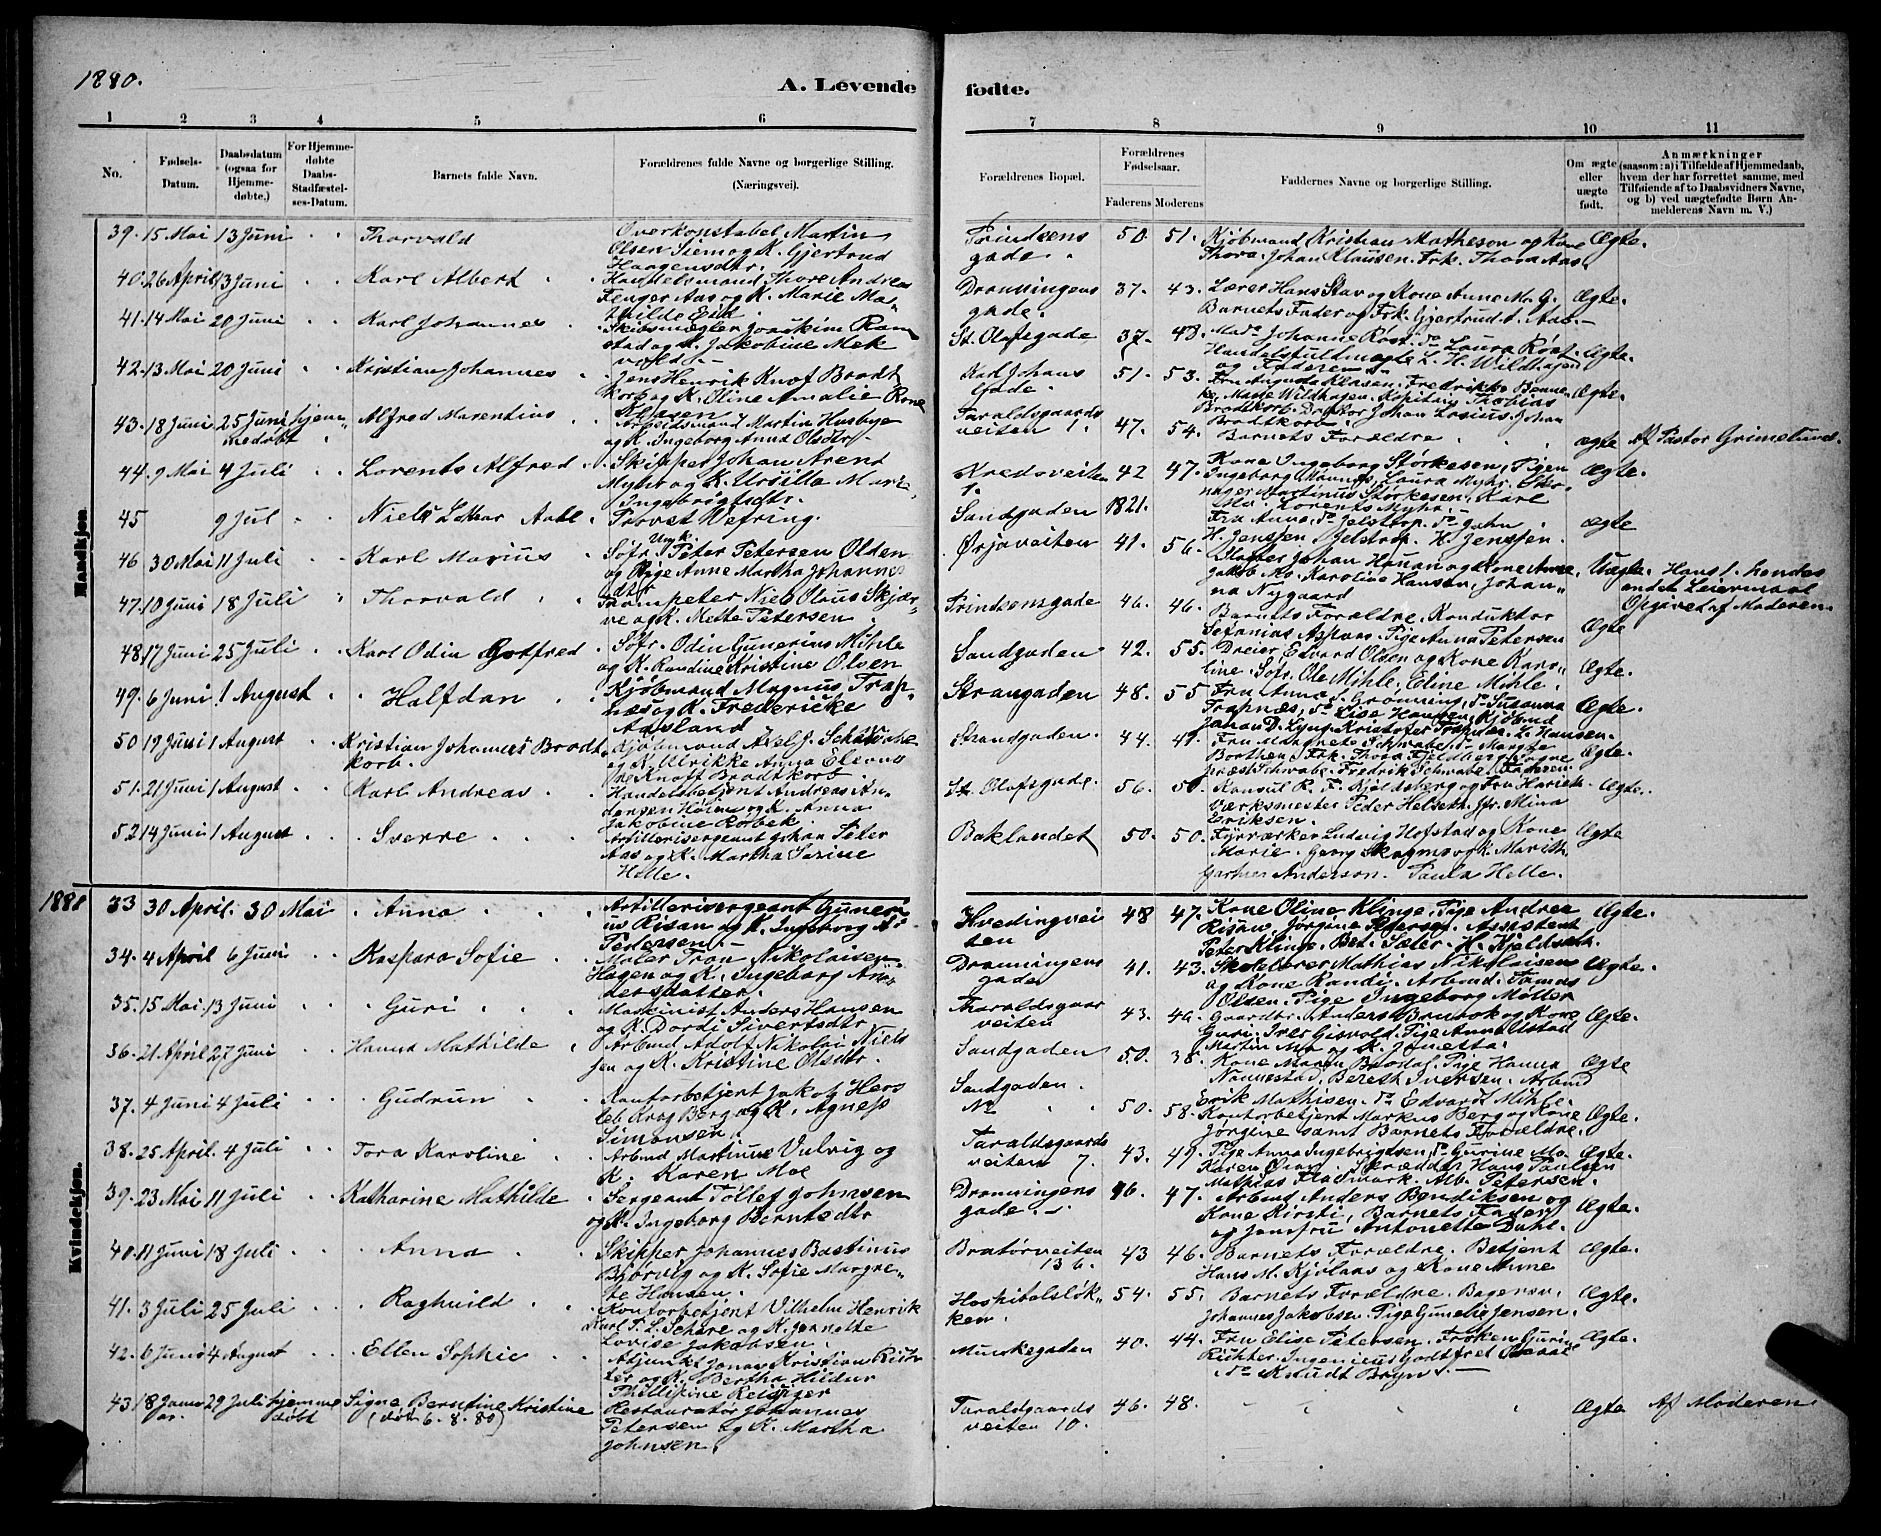 1880.
A. Levende fødte.
1 2 3 4 5 6 7 8 9 10 11
No.
Fødsels-Datum.
Daabsdatum (ogsaa for Hjemme-døbte.)
For Hjemme-døbte Daabs-Stadfæstel-ses-Datum.
Barnets fulde Navn.
Forældrenes fulde Navne og borgerlige Stilling. (Næringsvei).
Forældrenes Bopæl.
Forældrenes Fødselsaar.
Faderens Moderens
Faddernes Navne og borgerlige Stilling.
Om ægte eller uægte født.
Anmærkninger (saasom: a) i Tilfælde af Hjemmedaab, hvem der har forrettet samme, med Tilføiende af to Daabsvidners Navne, og b) ved uægtefødte Børn Anmelderens Navn m. V.)
Mandkjøn.
39. 15 Mai 13 Juni Thorvald
Overkonstabel Martin
Olsen Siem og K. Gjertrud
Haagensdtr.
Prindsens
gade.
50. 51. Kjøbmand Kristian Matheson og Kone Ægte.
Thora. Johan Klausen. Frk. Thora Aas.
40. 26 April 13 Juni Karl Albert
Handelsmand Thore Andreas
Fenger Aas og K. Marie Ma-
thilde Eid.
Dronningens
gade.
37. 43. Lærer Hans Stav og Kone Anne M. G. Ægte.
Barnets Fader og Frk. Gjertrud A. Aas.
41. 14 Mai 20 Juni Karl Johannes
Skibsmægler Joackim Ram
stad og K. Jakobine Mek
vold.
St. Olafsgade 37. 48. Mad. Johanne Røst. do Laura Røst. Ægte.
Handelsfuldmægt. L. H. Wildhagen
og Faderen
42. 13 Mai 20 Juni Kristian Johannes
Jens Henrik Knof Brodt
korb og K. Oline Amalie Rone
Klasen
Karl Johans
gade.
51. 53. Fru Augusta Klasen. Fredrikke Bonne Ægte.
Brodtkorb. Doktor Johan Lossius. Johan
Brodtkorb.
43. 18 Juni 25 Juni hjem-
medøbt
Alfred Marentius
Arbeidsmand Martin Husbye
og K. Ingeborg Anna Olsdtr.
Taraldsgaards
veiten 1.
47. 54. Barnets Forældre ægte Af Pastor Grimelund.
44. 9 Mai 4 Juli Lorents Alfred
Skipper Johan Arent
Myhr og K. Ursilla Marie
Ingebrigtsdtr.
42 47. Kone Ingeborg Størkesen, Pigen Ægte.
Ingeborg Mauness, Laura Myhr. Skr.
Martinus Størkesen, Karl
Mo. Lorents Myhr.
45 9 Jul Niels Lothar Aabl.
Provst Vefring.
Sandgaden 1821.
Fru Anna, do Jelstrop, do Jahn ægte
H. Jenssen. Jelstrop. H. Jenssen.
46 30 Mai 11 Juli Karl Marius
Ungk.
Søfr. Peter Petersen Olden
og Pige Anne Martha Johannes
dtr.
Ørjaveiten 41. 56.
Johan Hauan og Kone Anne, Uægte. Hans 1. hendes
Jakob Mo. Karoline Hansen, Johan-
na Nygaard
andet Leiermaal
Opgivet af Moderen.
47. 10 Juni 18 Juli Thorvald
Trompeter Niels Olaus Skjær-
ve og K. Mette Petersen.
Prindsensgade 46. 46. Barnets Forældre. Konduktør Ægte
Stefanias Aspaas. Pige Anna Petersen
48 17 Juni 25 Juli Karl Odin Gotfred
Søfr. Odin Gunerius Mihle
og K. Randine Kristine Olsen
Sandgaden 42. 55. Dreier Edvard Olsen og Kone Karo- Ægte.
line. Søfr. Ole Mihle, Eline Mihle.
49. 6 Juni 1 August Halfdan
Kjøbmand Magnus Trap-
næs og K. Fredericke
Aasland
Strandgaden 48. 55 Fru Anna do Grønning, do Susanna Ægte.
Trapnæs, do Lise Hansen, Kjøbmd
Johan D. Lyng. Kristofer Trapnes. L. Hansen.
50 19 Juni 1 August Kristian Johannes Brodt
korb.
Kjøbmand Axel J. Schwabe
og K. Ulrikke Anna Eleono
re Knoff Brodtkorb.
Strandgaden. 44. 47. Fru Margrete Schwabe. do Margte Ægte.
Borthen. Frk. Thora Fjeldberg. Sogne
præst Schwabe. Fredrik Schwabe. Faderen.
51. 21 Juni 1 August Karl Andreas
Handelsbetjent Andreas An-
dersen Høien og K. Anna
Jakobine Rørbek.
St. Olafsgade. 56. 50. Konsul R. F. Kjeldsberg og Fru Hariet Ægte.
Værksmester Peder Helseth. Gfr. Mina
Eriksen.
52. 14 Juni 1 August Sverre
Artillerisergeant Johan Peter
Aas og K. Martha Sarine
Helle.
Baklandet 50. 50. Fyrværker Ludvig Hofstad og Kone Ægte
Marie. Georg Skagmo og K. Marith
Gartner Anderson. Paula Helle.
1880
Kvindekjøn.
33 30 April. 30 Mai Anna
Artillerisergeant Guneri
us Risan og K. Ingeborg A.
Pedersen.
Hvedingvei
ten
48 47. Kone Oline Klinge, Pige Andrea Ægte.
Risan, Jørgine Petersen. Assistent
Peter Klinge. Bet. Sæter. H. Kjeldseth.
34. 4 April 6 Juni Kaspara Sofie
Maler Tron Nikolaisen
Hagen og K. Ingeborg An-
dersdatter.
Dronningens
gade
41. 43. Skolelærer Mathias Nikolaisen Ægte.
og Kone Randi. Arbmd. Tomas
Olsen. Pige Ingeborg Møller
35. 15 Mai. 13 Juni Guri
Maskinist Anders Hansen
og K. Dordi Sivertsdtr.
Tharaldsgaar
veiten
43. 40. Gaardbr. Anders Brubok og Kone Ægte.
Guri. Iver Gisvold. Pige Anne Alstad
Martin Mo og K. Janetta.
36. 21 April 27 Juni Hanna Mathilde
Arbmd Adolf Nikolai Niels
sen og K. Kristine Olsdtr.
Sandgaden 50. 38. Kone Maren Brodal. Pige Hanna Ægte
Nannestad, Bereth Iversen. Arbmd
Erik Mathisen. do Edvard Mihle.
37. 4 Juni 4 Juli Gudrun
Kontorbetjent Jakob Hers
leb Krog Berg og K. Agness
Simonsen.
Sandgaden.
No
50. 58. Kontorbetjent Markus Berg og Kone Ægte.
Jørgine samt Barnets Forældre.
38. 25 April. 4 Juli Tora Karoline
Arbmd Martinus Vulvig og
K. Karen Moe
Taraldsgaards
veiten 7.
43. 49. Pige Anna Ingebrigtsen, do Gurine Mo. Ægte.
Karen Øian. Skrædder Hans Paulsen
Mathias Fladmark. Alb. Petersen.
39. 23 Mai 11 Juli Katharine Mathilde
Sergeant Tollef Johnsen
og K. Ingeborg Berntsdtr
Dronningens
gade
46. 47. Arbmd Anders Bendiksen og Ægte.
Kone Kirsti, Barnets Fader
og Jomfru Antonette Dahl.
40. 11 Juni 18 Juli Anna
Skipper Johannes Bastinus
Bjørvig og K. Sofie Margre-
te Hansen.
Bratørveiten
13 b.
43 46. Barnets Forældre. Betjent Ægte.
Hans M. Kjølaas og Kone Anne
41. 3 Juli 25 Juli Raghnild
Kontorbetjent Vilhelm Henrik
Karl T. L. Schere og K. Jennette
Lovise Jakobsen.
Hospitalsløk-
ken.
54. 55. Barnets Forældre. Bagersv. Ægte.
Johannes Jakobsen. Pige Gunelia Jensen.
42. 6 Juni 4 August Ellen Sophie
Adjunkt Jonas Kristian Rich
ter og K. Bertha Hildur
Phillipine Reisiger
Munkegaden 40. 44. Fru Elise Petersen. Frøken Gurin Ægte.
Richter. Ingenieur Godtfret
do Knudt Bryn.
43 18 Janu
ar.
29 Juli hjemme
døbt
Signe Berntine Kristine
(død 6. 8. 80)
Restauratør Johannes
Petersen og K. Martha
Johnsen.
Taraldsgaards
veiten 10.
46. 48. Ægte Af Moderen